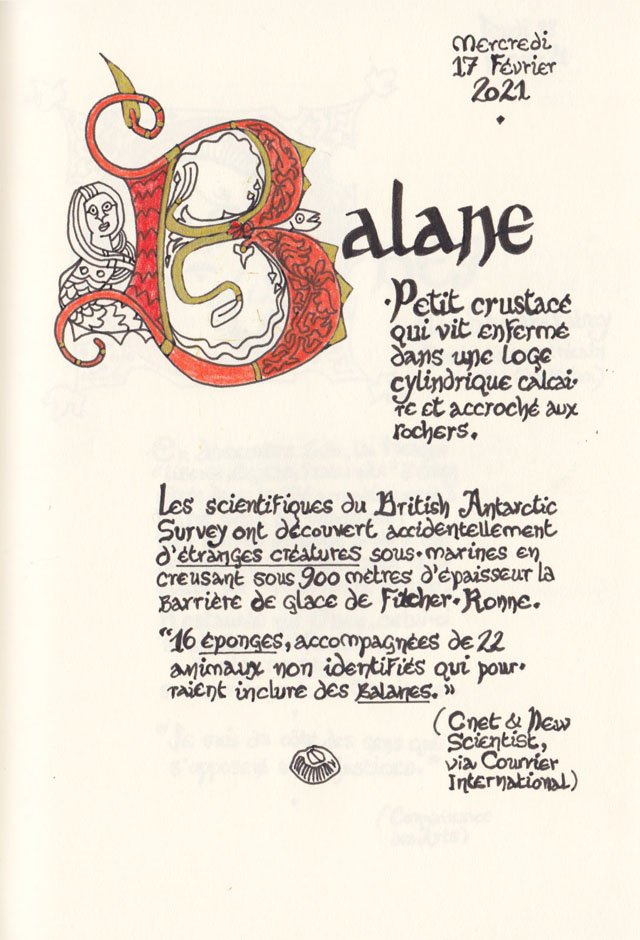 Mercredi
17 Février
2021
Balane
·Petit crustacé
qui vit enfermé
dans une loge
cylindrique calcai-
re et accroché aux
rochers.
Les scientifiques du British Antarctic
Survey ont découvert accidentellement
d'étranges créatures sous-marines en
creusant sous 900 mètres d'épaisseur la
Barrière de glace de Filcher-Ronne.
"16 éponges, accompagnées de 22
animaux non identifiés qui pour-
raient inclure des Balanes. »
(Cnet & New
Scientist,
via Courrier
International)